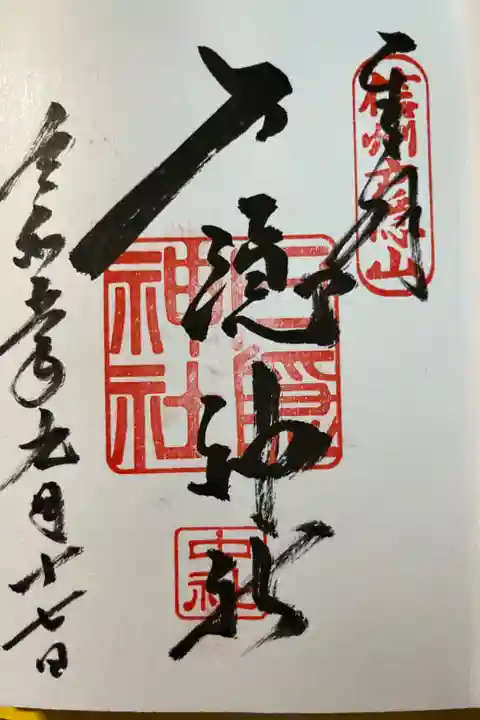 奉拝
信州戸隠山
戸隠神社
戸隠神社
中社
令和五年九月十七日